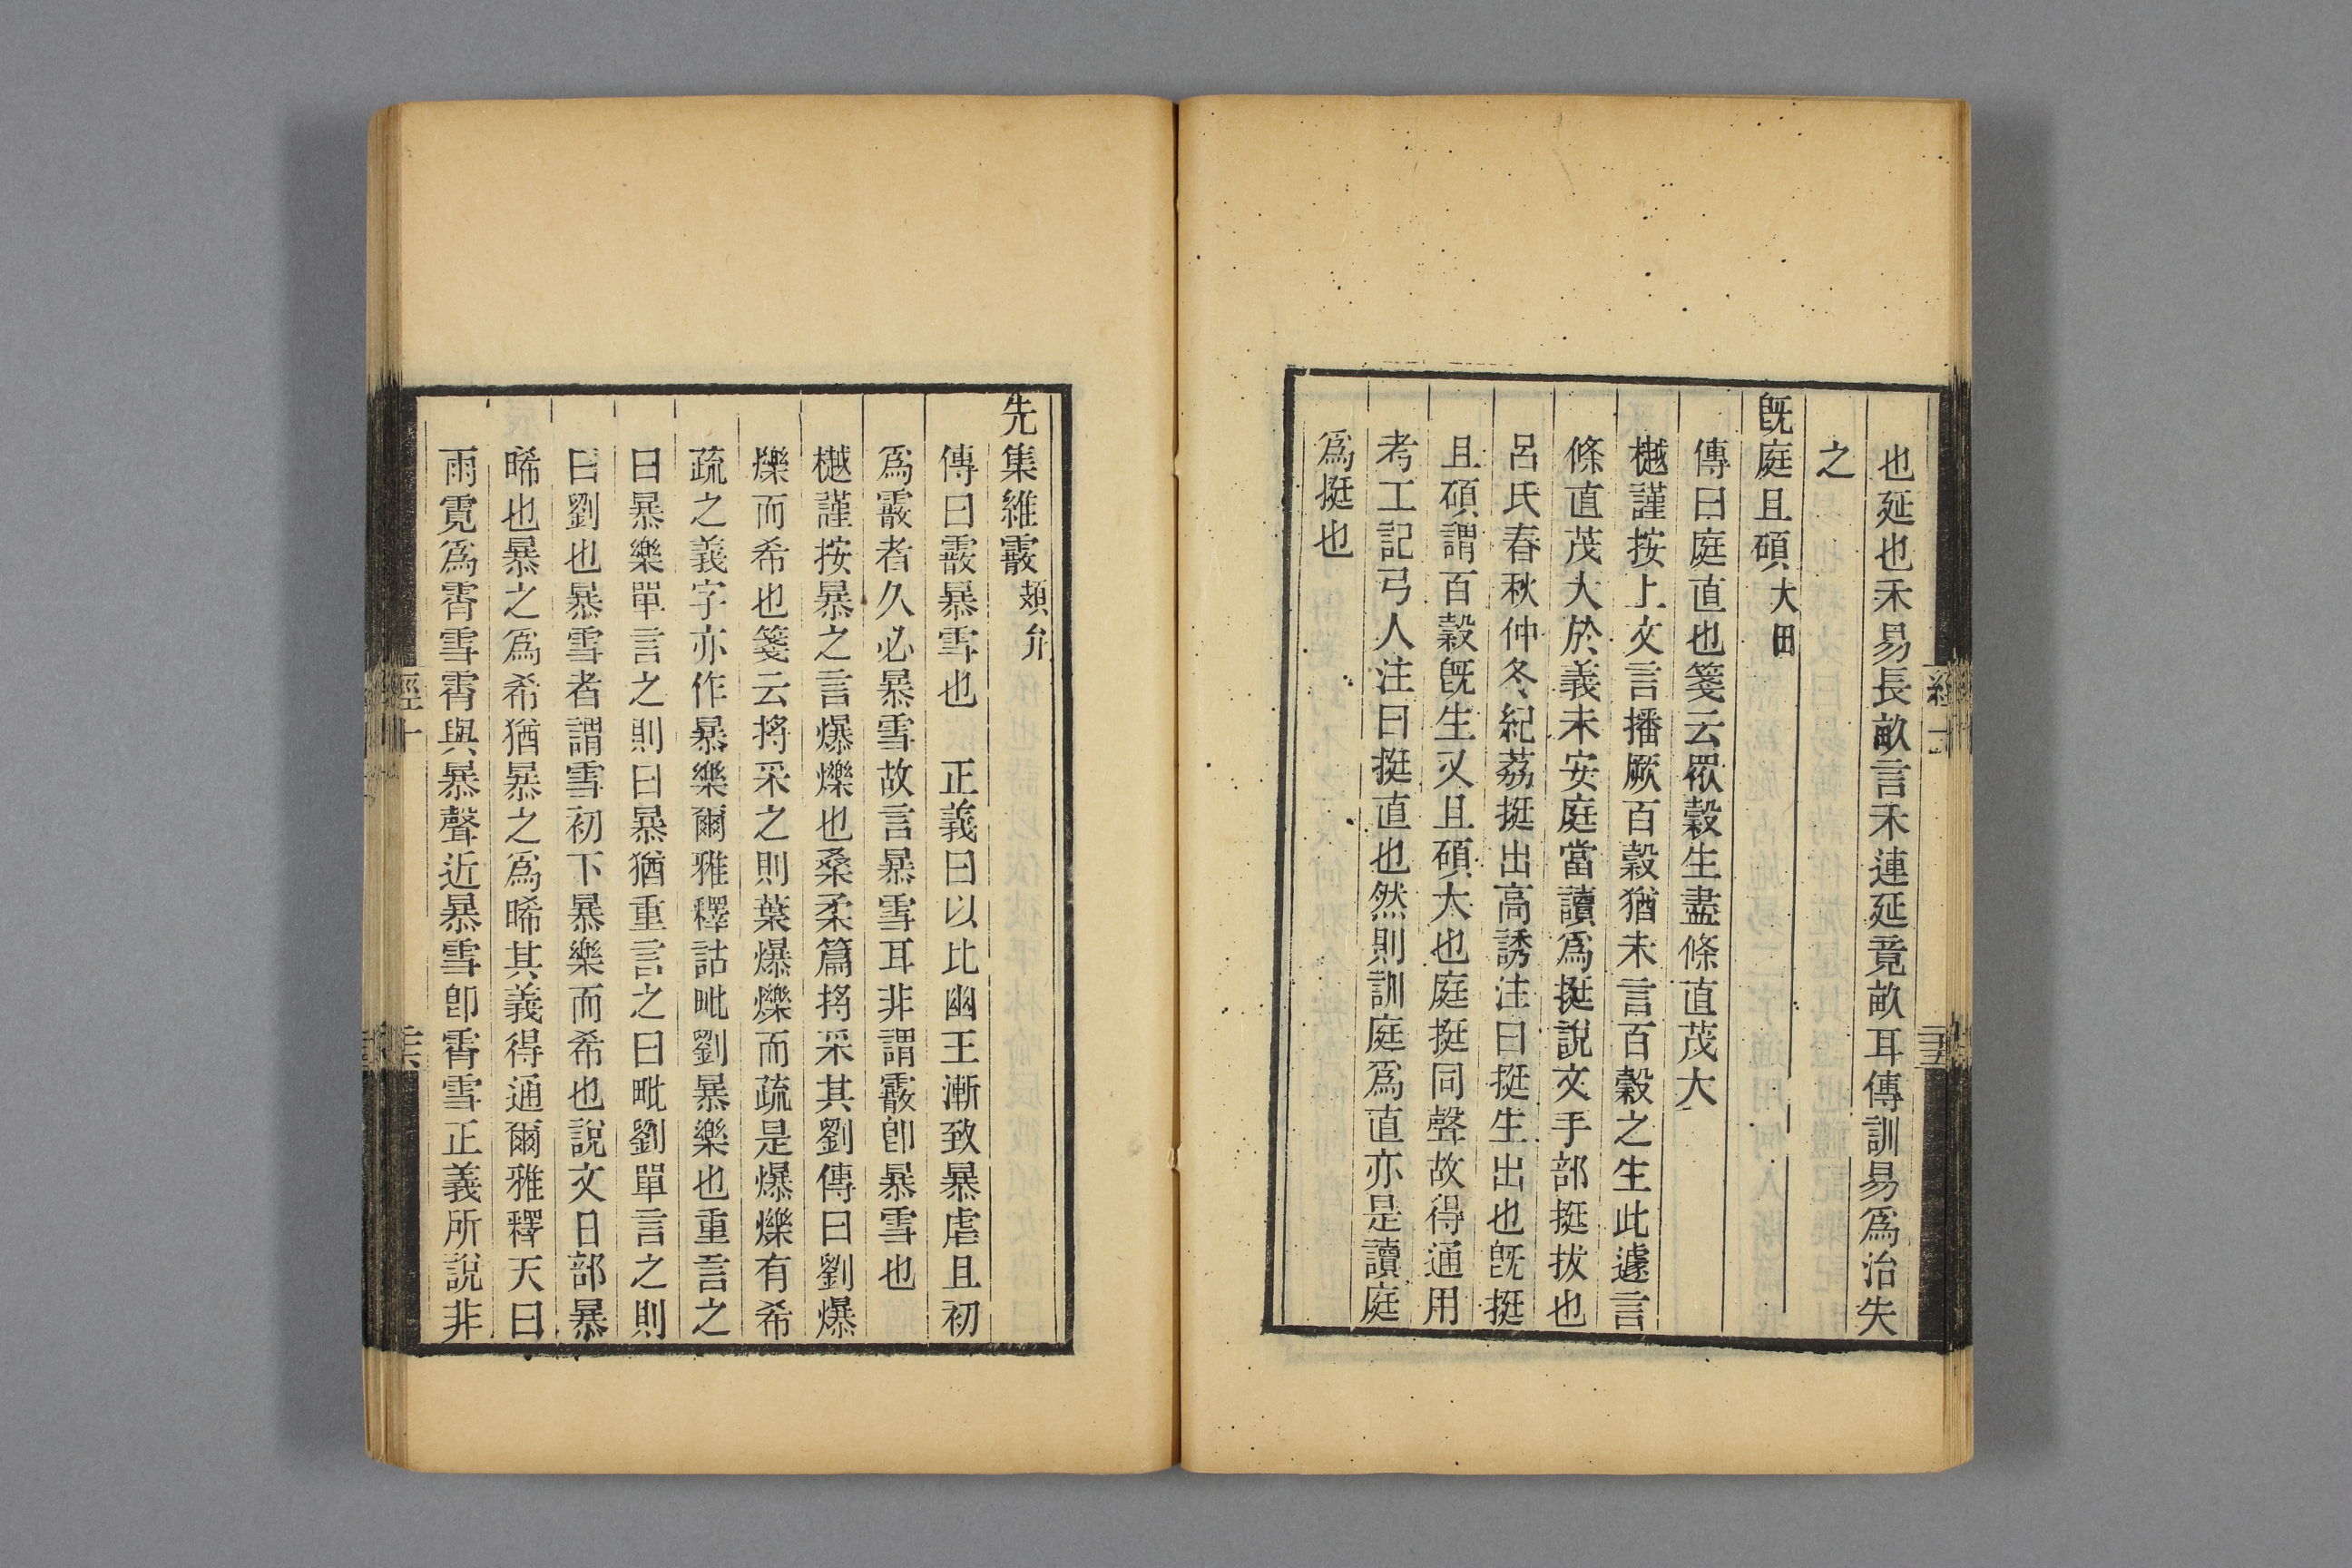 也延也禾易長畝言禾連延竟畝耳傳訓易爲治失
之
旣庭且碩大田
傳曰庭直也箋云眾穀生盡條直茂大
樾謹按上文言播厥百穀猶未言百穀之生此遽言
條直茂大於義未安庭當讀爲挺說文手部挺拔也
呂氏春秋仲冬紀荔挺出高誘注曰挺生出也旣挺
且碩謂百穀旣生又且碩大也庭挺同聲故得通用
考工記弓人注曰挺直也然則訓庭爲直亦是讀庭
爲挺也
先集維霰頍弁
傳曰霰暴雪也　正義曰以比幽王漸致暴虐且初
爲霰者久必暴雪故言暴雪耳非謂霰卽暴雪也
樾謹按暴之言爆爍也桑柔篇捋采其劉傳曰劉爆
爍而希也箋云捋采之則葉爆爍而疏是爆爍有希
疏之義字亦作暴樂爾雅釋詁毗劉暴樂也重言之
曰暴樂單言之則曰暴猶重言之曰毗劉單言之則
曰劉也暴雪者謂雪初下暴樂而希也說文日部暴
晞也暴之爲希猶暴之爲晞其義得通爾雅釋天曰
雨霓爲霄雪霄與暴聲近暴雪卽霄雪正義所說非